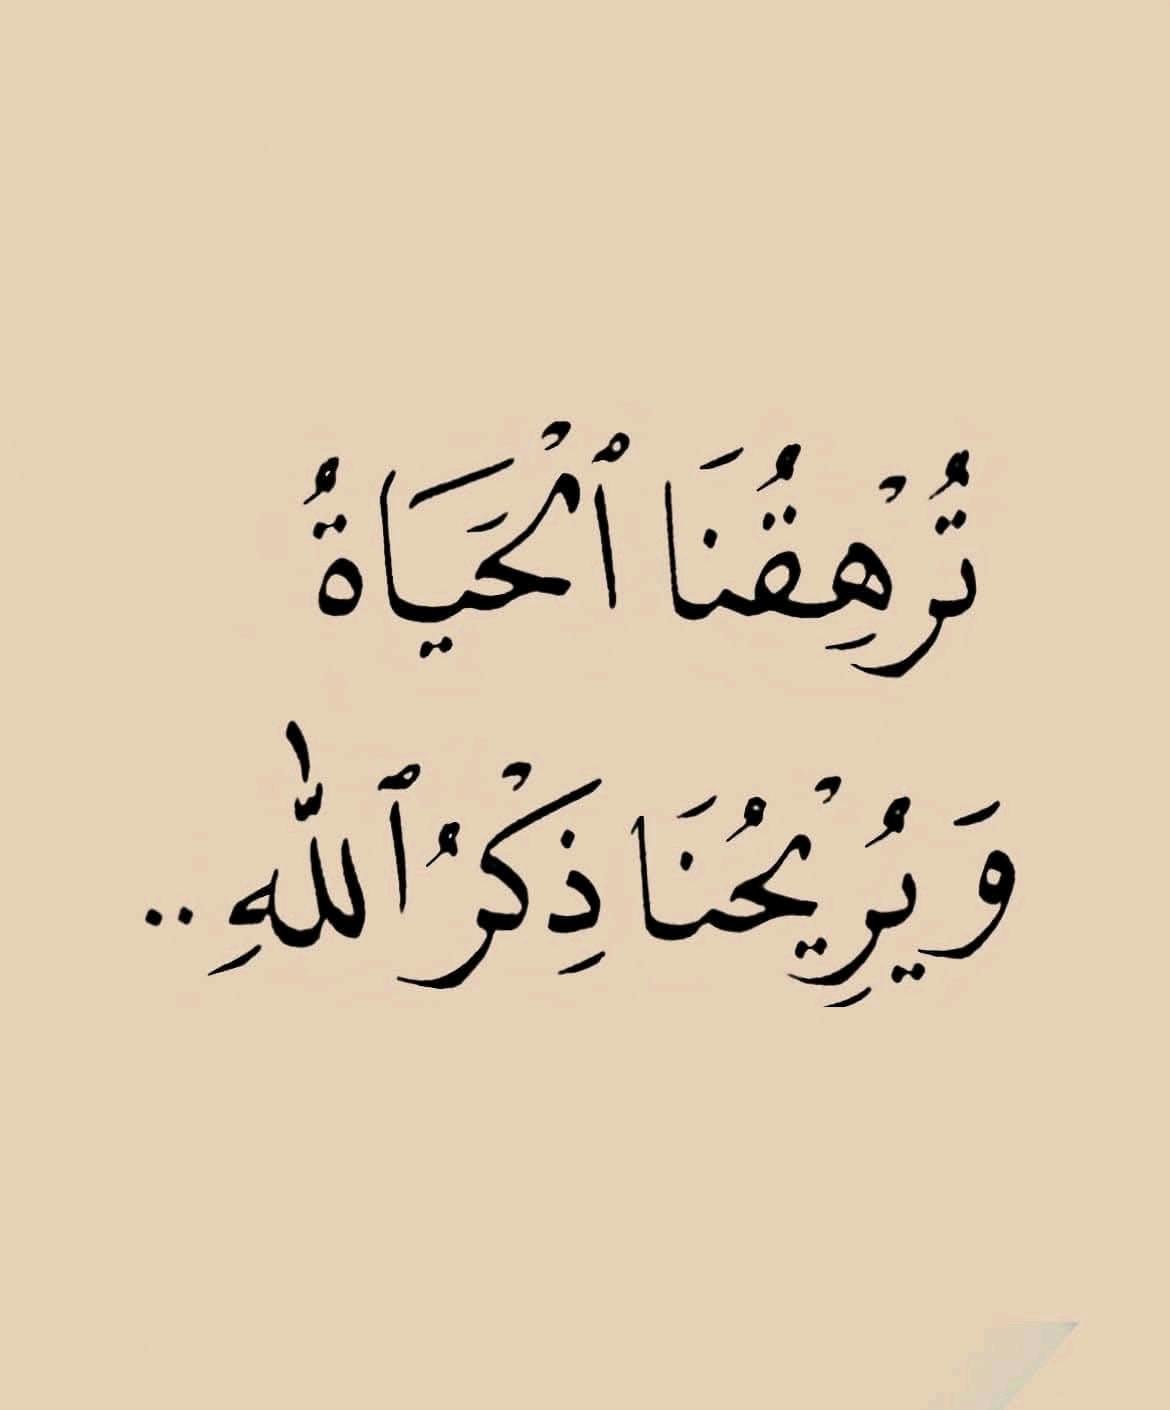 تُرْهِقُنَا ٱلْحَيَاةُ
وَ يُرِيْحُنَا ذِكْرُ ٱللّٰهِ ..